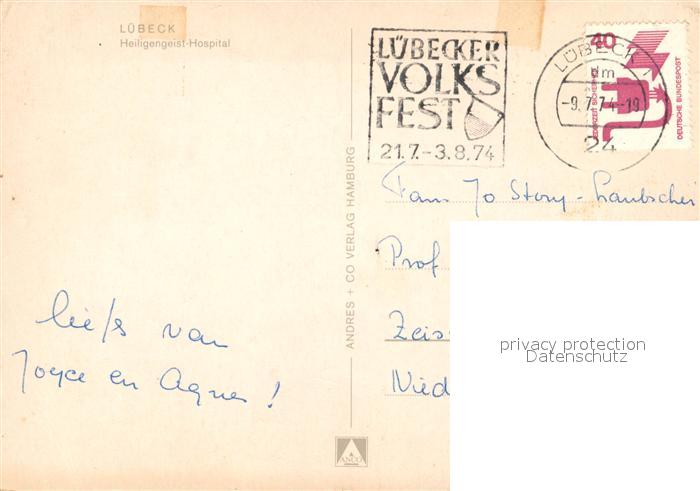 LÜBECK
Heiligengeist-Hospital
LÜBECKER
VOLKS
FEST
21.7.–3.8.74
LÜBECK
-9.7.74-19
24
40
JEDERZEIT SICHERHEIT
DEUTSCHE BUNDESPOST
Fam Jo Story-
Prof
Zeis
Nied
liefs van
Joyce en Agnes!
ANDRES + CO VERLAG HAMBURG
ANCO
privacy protection
Datenschutz